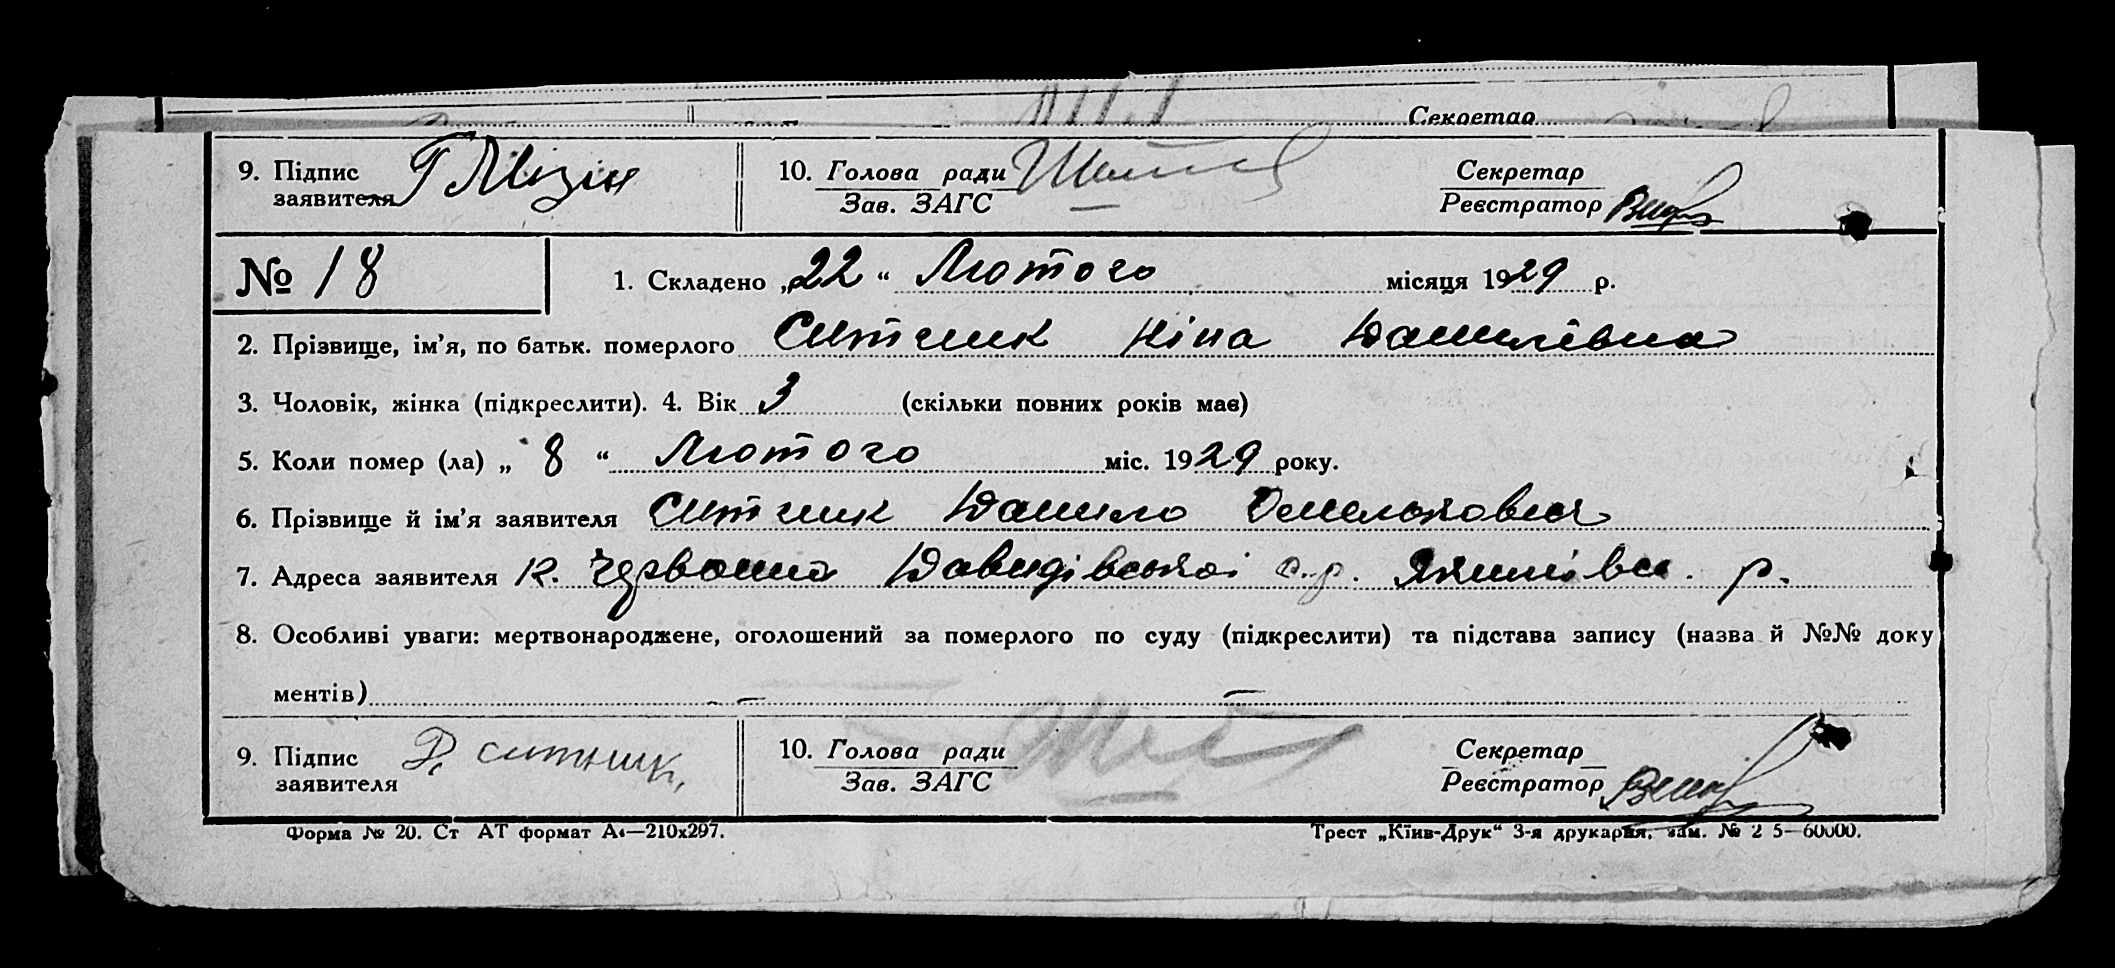 Секретар
9. Підпис заявителя Г Мізін 10. Голова ради Зав. ЗАГС Секретар Реєстратор
№ 18 1. Складено „22“ Лютого місяця 1929 р.
2. Прізвище, ім’я, по батьк. померлого Ситник Ніна Данилівна
3. Чоловік, жінка (підкреслити). 4. Вік 3 (скільки повних років має)
5. Коли помер (ла) „ 8 “ Лютого міс. 1929 року.
6. Прізвище й ім’я заявителя Ситник Данило Омелькович
7. Адреса заявителя к. Червоний Давидівської с.р. Якимівск. р.
8. Особливі уваги: мертвонароджене, оголошений за померлого по суду (підкреслити) та підстава запису (назва й №№ доку
ментів)
9. Підпис заявителя Д, ситник, 10. Голова ради Зав. ЗАГС Секретар Реєстратор
Форма № 20. Ст АТ формат А4—210х297. Трест „Київ-Друк“ 3-я друкарня, зам. № 2 5—60000.